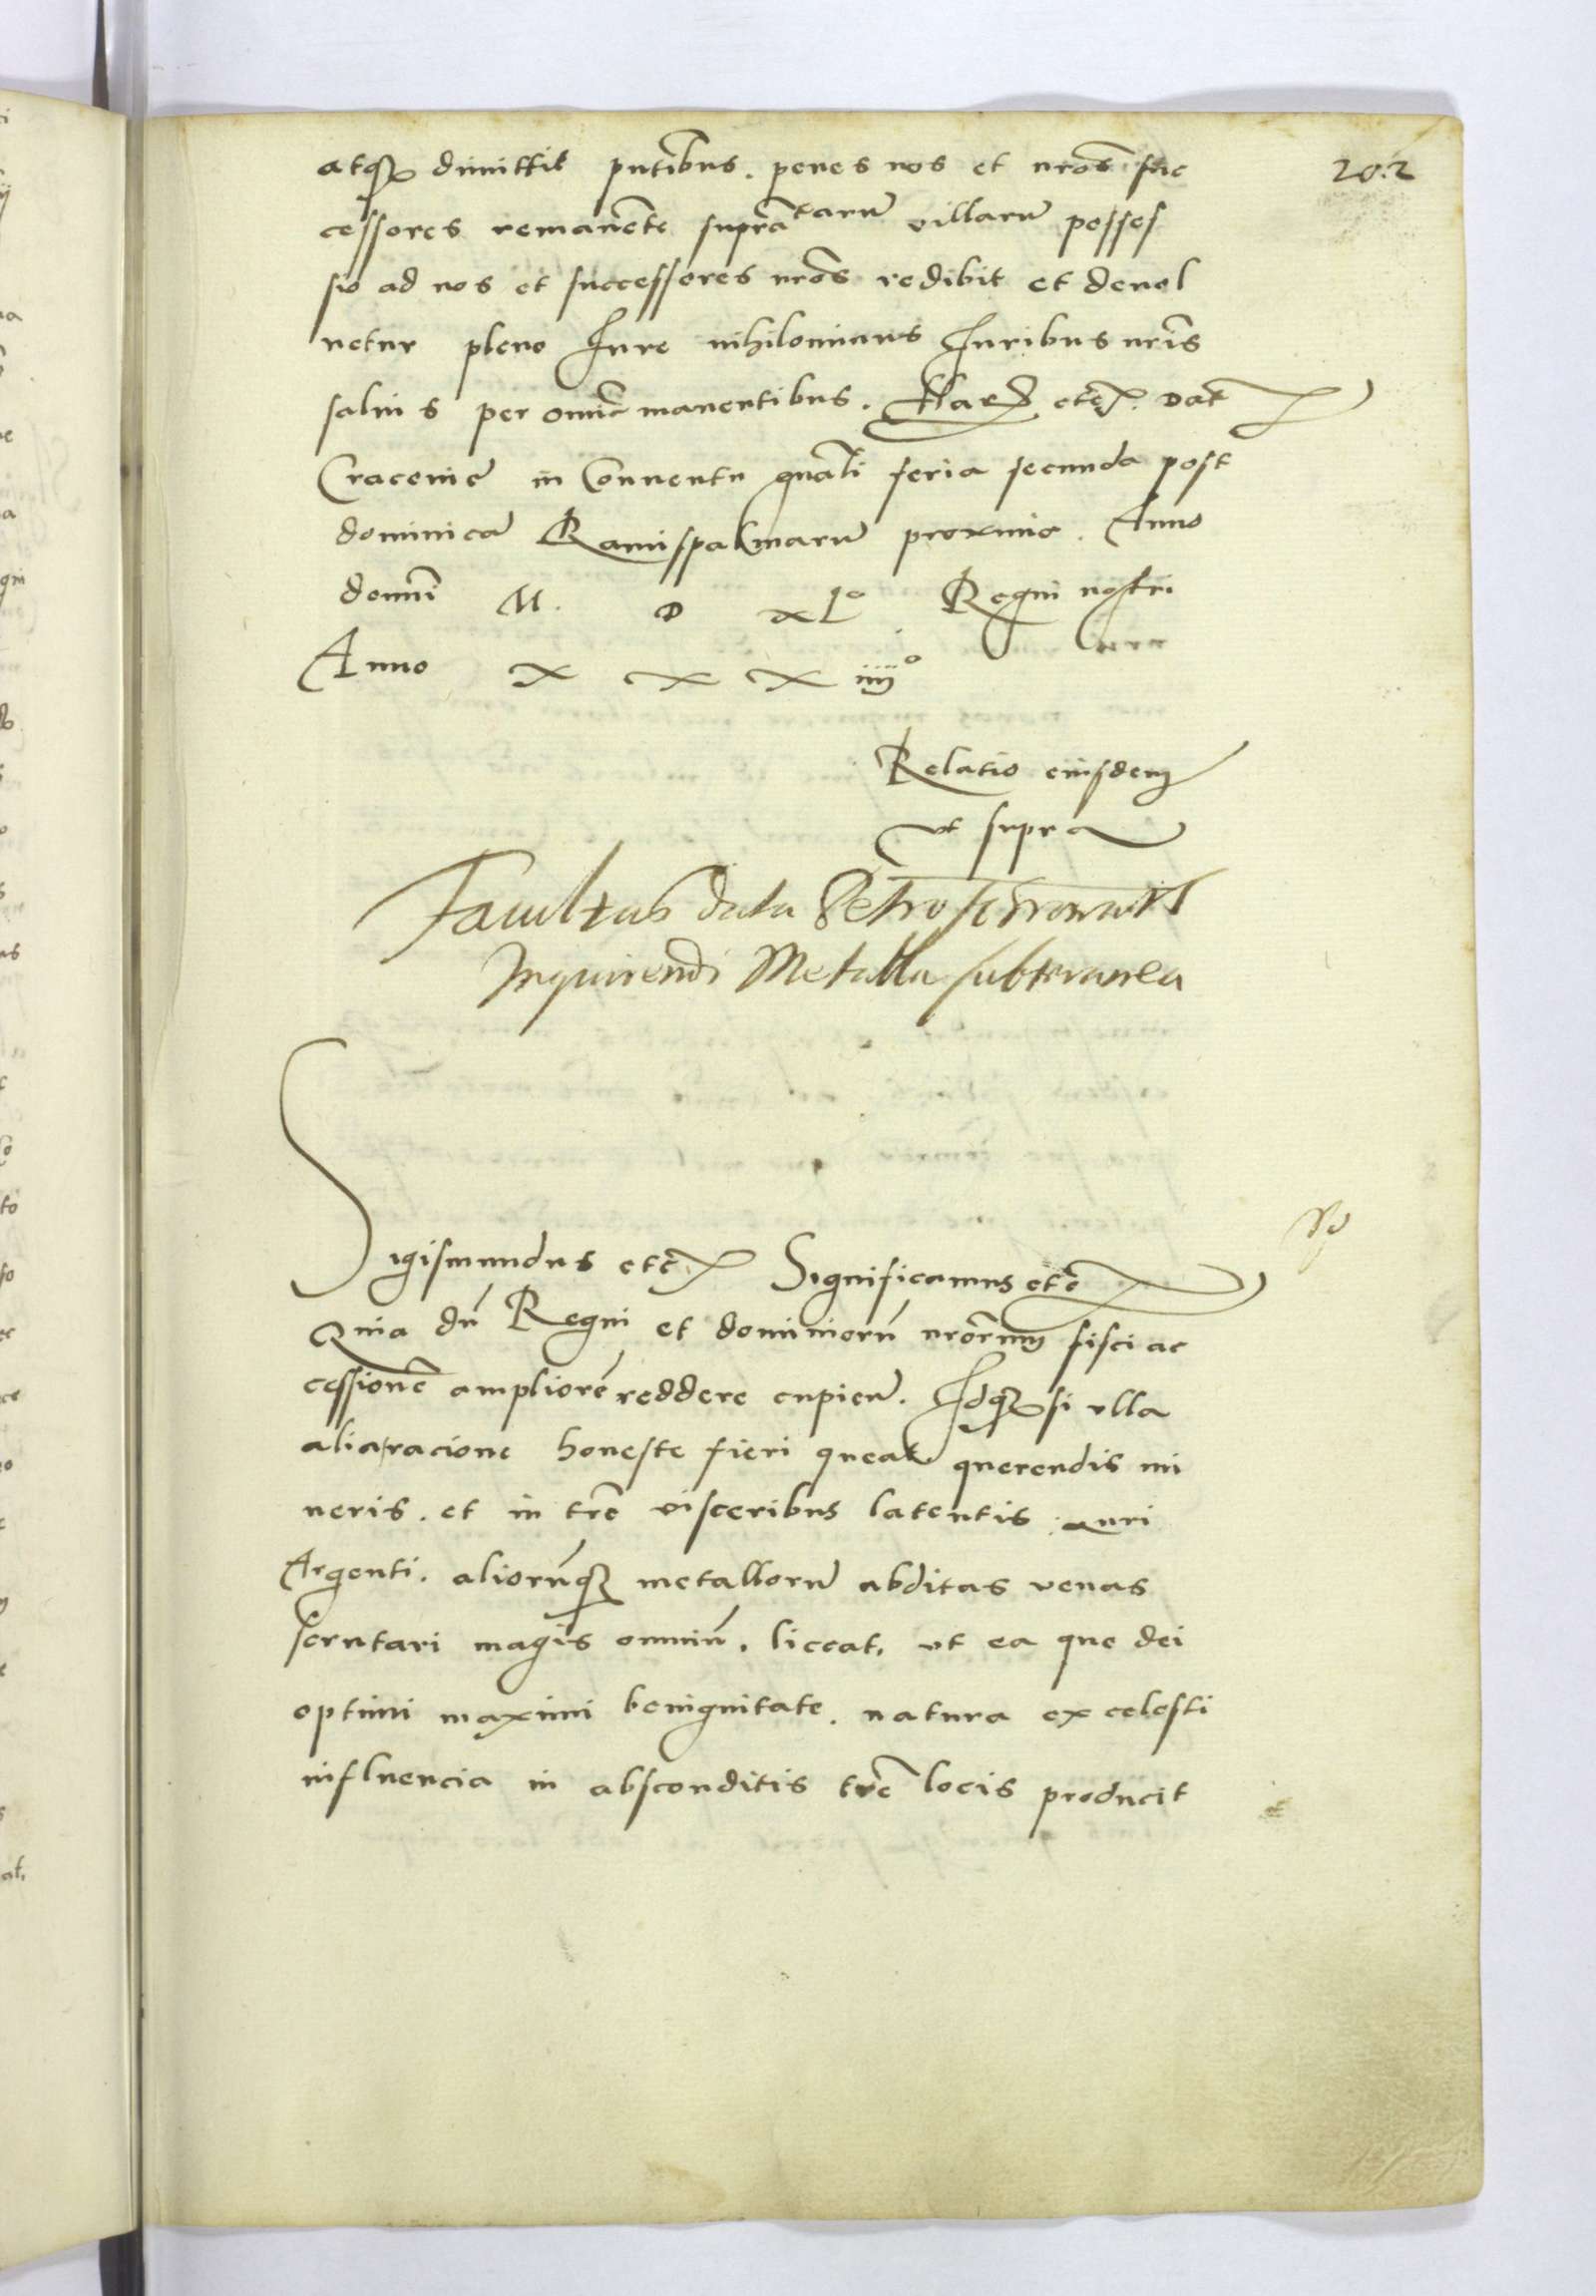 202
atqꝫ dimittit pntibus. penes nos et nros suc
cessores remanēte suprātarū villarū posses
sio ad nos et successores nros redibit et devol
vetur pleno Jure nihilominus Juribus nris
salvis per omnē manentibus. Harꝫ etc. Dat
Cracovie in Conventu gnali feria secunda post
dominicā Ramispalmarū proxima. Anno
domni M. D xLo Regni nostri
Anno x x x iiijo
Relatio eiusdem
ut supra
Facultas data Petro
Inquirendi Metalla subteranea
Sigismundus etc Significamus etc
Quia dū Regni et dominiorū nrorum fisci ac
cessionē ampliorē reddere cupiem. Idqꝫ si ulla
alia racione honeste fieri queat querendis mi
neris. et in tre visceribus latentis auri
Argenti. aliorūqꝫ metallorū abditas venas
scrutari magis omniū. liceat, ut ea que dei
optimi maximi benignitate. natura ex celesti
influencia in absconditis tre locis producit